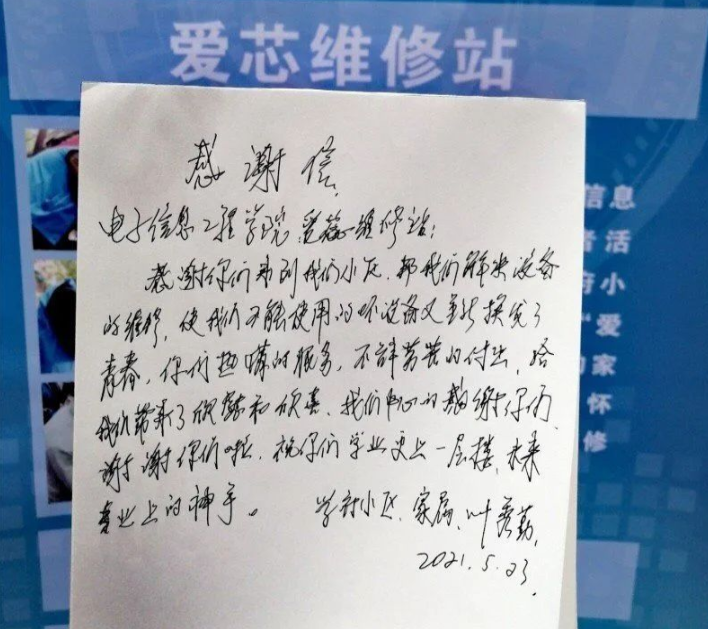 爱芯维修站
感谢信
电子信息工程学院爱芯维修站:
感谢你们来到我们小区,帮我们解决设备
的维修,使我们不能使用的坏设备又重新换发了
青春,你们热情的服务,不辞劳苦的付出,给
我们带来了欣慰和欢喜,我们中心的感谢你们,
谢谢你们啦,祝你们学业更上一层楼,未来
事业上的神手。
学府小区,家属,叶秀勤,
2021.5.23.
信息
者活
府小
“爱
的家
怀
修